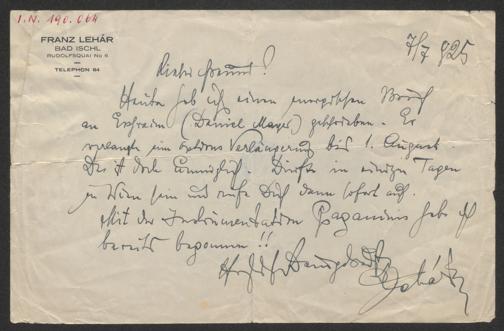 I.N. 190.664
FRANZ LEHÁR
BAD ISCHL
RUDOLFSQUAI No 6
TELEPHON 84
7/7 925
Lieber Freund!
Heute hab ich einen energischen Brief
an Ephraim (Daniel Mayer) geschrieben. Er
verlangte eine Options Verlängerung bis 1. August.
Das ist doch unmöglich. Dürfte in einigen Tagen
in Wien sein und rufe Dich dann sofort auf.
Mit der Instrumentation Paganinis hab ich
bereits begonnen!!
Herzlichst
Lehár